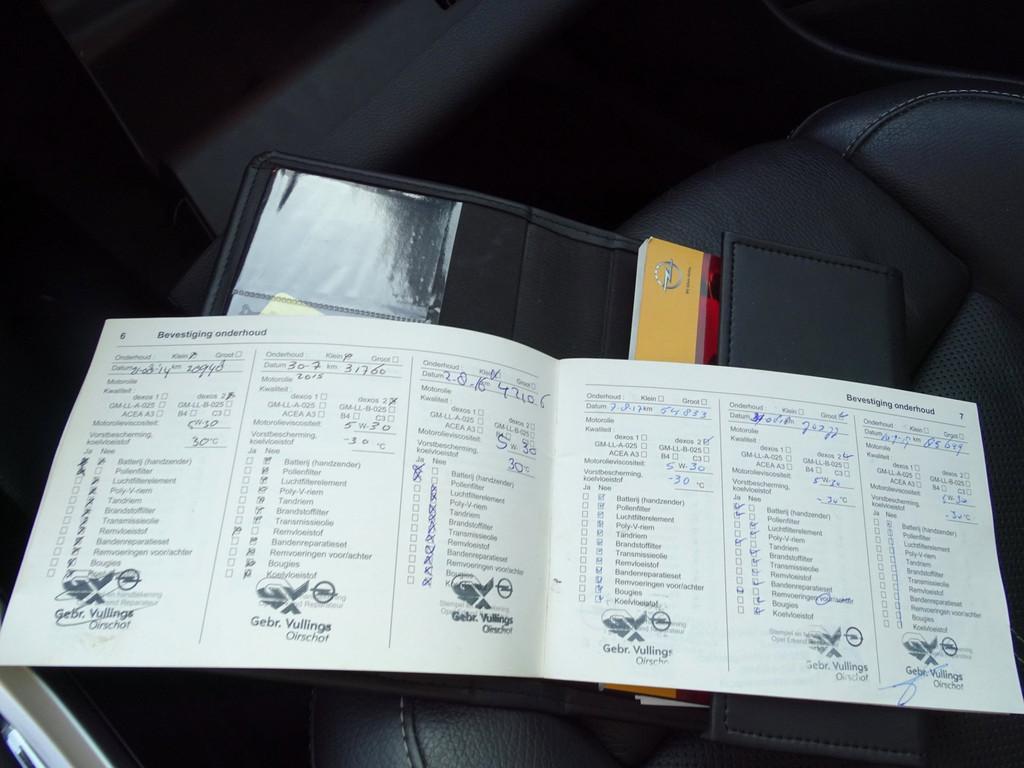 6 Bevestiging onderhoud
Onderhoud : Klein Groot
Datum 21-08-14 km 20948
Motorolie
Kwaliteit :
dexos 1 dexos 2
GM-LL-A-025 GM-LL-B-025
ACEA A3 B4 C3
Motorolieviscositeit: 5W-30
Vorstbescherming,
koelvloeistof 30°C
Ja Nee
Batterij (handzender)
Pollenfilter
Luchtfilterelement
Poly-V-riem
Tandriem
Brandstoffilter
Transmissieolie
Remvloeistof
Bandenreparatieset
Remvoeringen voor/achter
Bougies
Koelvloeistof
Gebr. Vullings
Oirschot
Onderhoud : Klein Groot
Datum 30-7 km 31760
2015
Motorolie
Kwaliteit :
dexos 1 dexos 2
GM-LL-A-025 GM-LL-B-025
ACEA A3 B4 C3
Motorolieviscositeit: 5W-30
Vorstbescherming,
koelvloeistof -30 °C
Ja Nee
Batterij (handzender)
Pollenfilter
Luchtfilterelement
Poly-V-riem
Tandriem
Brandstoffilter
Transmissieolie
Remvloeistof
Bandenreparatieset
Remvoeringen voor/achter
Bougies
Koelvloeistof
Gebr. Vullings
Oirschot
Onderhoud : Klein Groot
Datum 2-8-16 km 42106
Motorolie
Kwaliteit :
dexos 1 dexos 2
GM-LL-A-025 GM-LL-B-025
ACEA A3 B4 C3
Motorolieviscositeit: 5W-30
Vorstbescherming,
koelvloeistof 30°C
Ja Nee
Batterij (handzender)
Pollenfilter
Luchtfilterelement
Poly-V-riem
Tandriem
Brandstoffilter
Transmissieolie
Remvloeistof
Bandenreparatieset
Remvoeringen voor/achter
Gebr. Vullings
Oirschot
Bevestiging onderhoud 7
Onderhoud : Klein Groot
Datum 7-8-17 km 54833
Motorolie
Kwaliteit :
dexos 1 dexos 2
GM-LL-A-025 GM-LL-B-025
ACEA A3 B4 C3
Motorolieviscositeit: 5W-30
Vorstbescherming,
koelvloeistof -30 °C
Ja Nee
Batterij (handzender)
Pollenfilter
Luchtfilterelement
Poly-V-riem
Tandriem
Brandstoffilter
Transmissieolie
Remvloeistof
Bandenreparatieset
Remvoeringen voor/achter
Bougies
Koelvloeistof
Gebr. Vullings
Oirschot
Onderhoud : Klein Groot
Datum km
Motorolie
Kwaliteit :
dexos 1 dexos 2
GM-LL-A-025 GM-LL-B-025
ACEA A3 B4 C3
Motorolieviscositeit: 5W-30
Vorstbescherming,
koelvloeistof -30°C
Ja Nee
Batterij (handzender)
Pollenfilter
Luchtfilterelement
Poly-V-riem
Tandriem
Brandstoffilter
Transmissieolie
Remvloeistof
Bandenreparatieset
Remvoeringen voor/achter
Bougies
Koelvloeistof
Gebr. Vullings
Oirschot
Onderhoud : Klein Groot
Datum km
Motorolie
Kwaliteit :
dexos 1 dexos 2
GM-LL-A-025 GM-LL-B-025
ACEA A3 B4 C3
Motorolieviscositeit: 5W-30
Vorstbescherming,
koelvloeistof -30°C
Ja Nee
Batterij (handzender)
Pollenfilter
Luchtfilterelement
Poly-V-riem
Tandriem
Brandstoffilter
Transmissieolie
Remvloeistof
Bandenreparatieset
Remvoeringen voor/achter
Bougies
Koelvloeistof
Gebr. Vullings
Oirschot